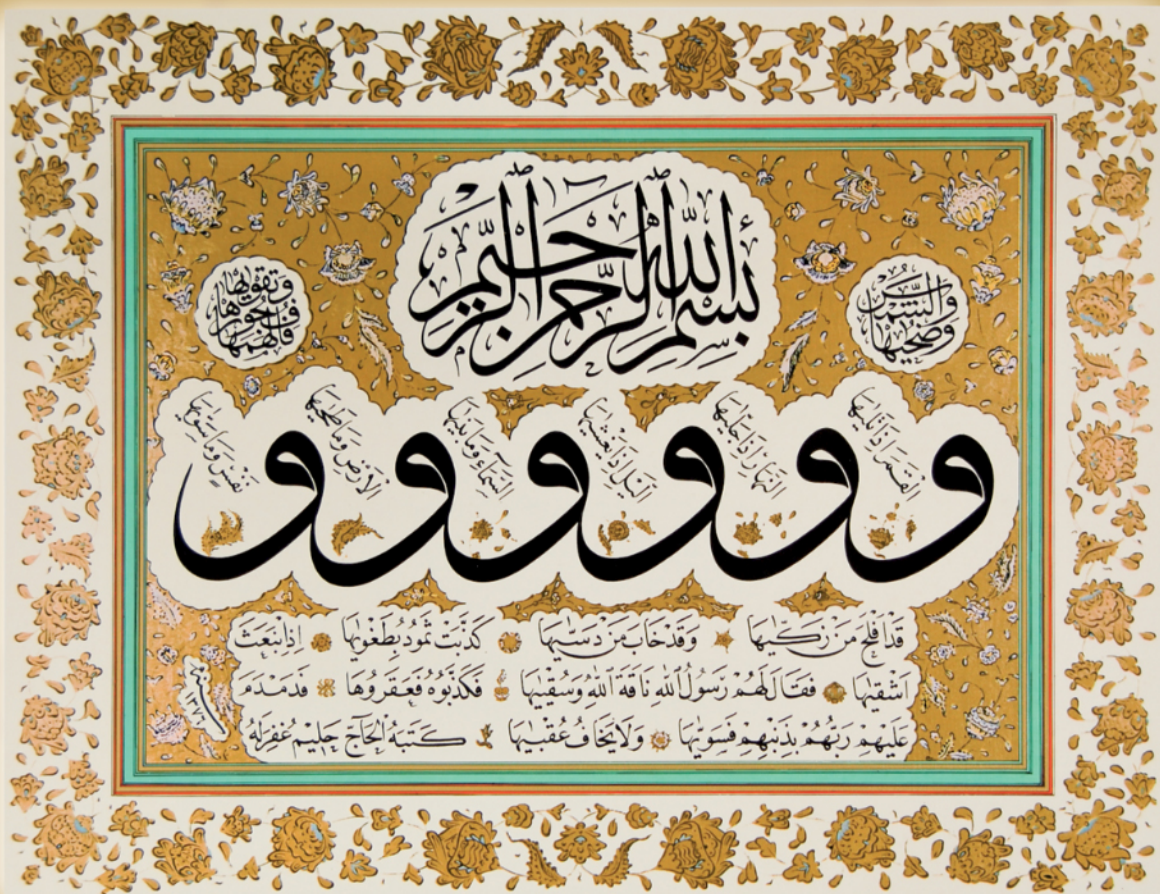 بسم الله الرحمن الرحيم
والشمس وضحيها
و القمر اذا تليها
و النهار اذا جليها
و اليل اذا يغشيها
و السماء وما بنيها
و الارض وما طحيها
و نفس وما سويها
فالهمها فجورها وتقويها
قد افلح من زكيها وقد خاب من دسيها كذبت ثمود بطغويها اذ انبعث
اشقيها فقال لهم رسول الله ناقة الله وسقييها فكذبوه فعقروها فدمدم
عليهم ربهم بذنبهم فسويها ولا يخاف عقبيها كتبه الحاج حليم غفرله
١٣٧٦